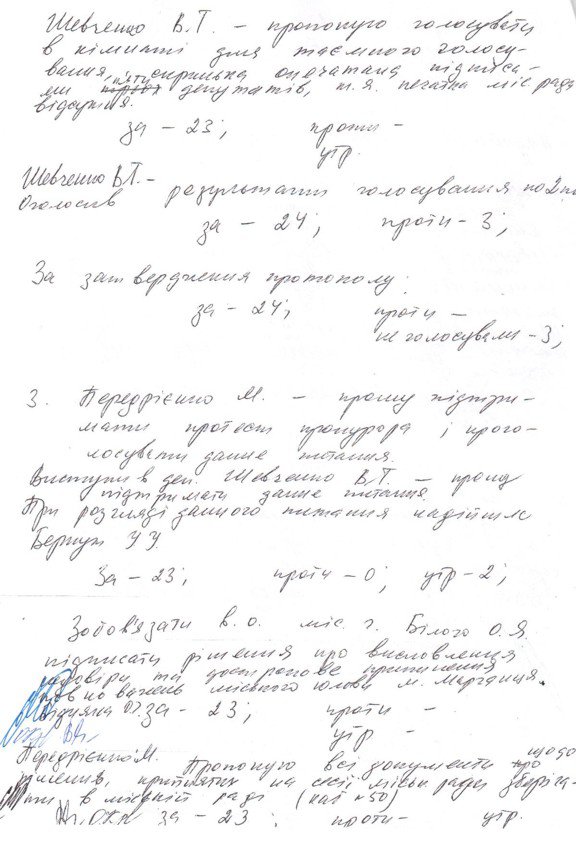 Шевченко В.Т. – пропоную голосувати
в кімнаті для таємного голосу-
вання, скринька опечатана підписа-
ми пяти депутатів, т.я. печатка міс ради
відсутня.
за – 23; проти –
утр.
Шевченко В.Т. –
Оголосив результати голосування по 2 пи
за – 24; проти – 3;
За затвердження протоколу:
за – 24; проти –
не голосували – 3;
3. Передрієнко М. – прошу підтри-
мати протест прокурора і прого-
лосувати данне питання.
Виступив деп. Шевченко В.Т. – прошу
підтримати данне питання.
При розгляді данного питання надійшла
За – 23; проти – 0; утр – 2;
Зобов'язати в.о. міс. г. Білого О.Я.
підписати рішення про висловлення
недовіри та дострокове припинення
повноважень міського голови м. Марганця
за – 23; проти –
утр –
Передрієнко М. Пропоную всі документи щодо
рішень, прийнятих на сесії міськ ради зберіга-
ти в міській раді (каб № 50)
за – 23; проти – утр.